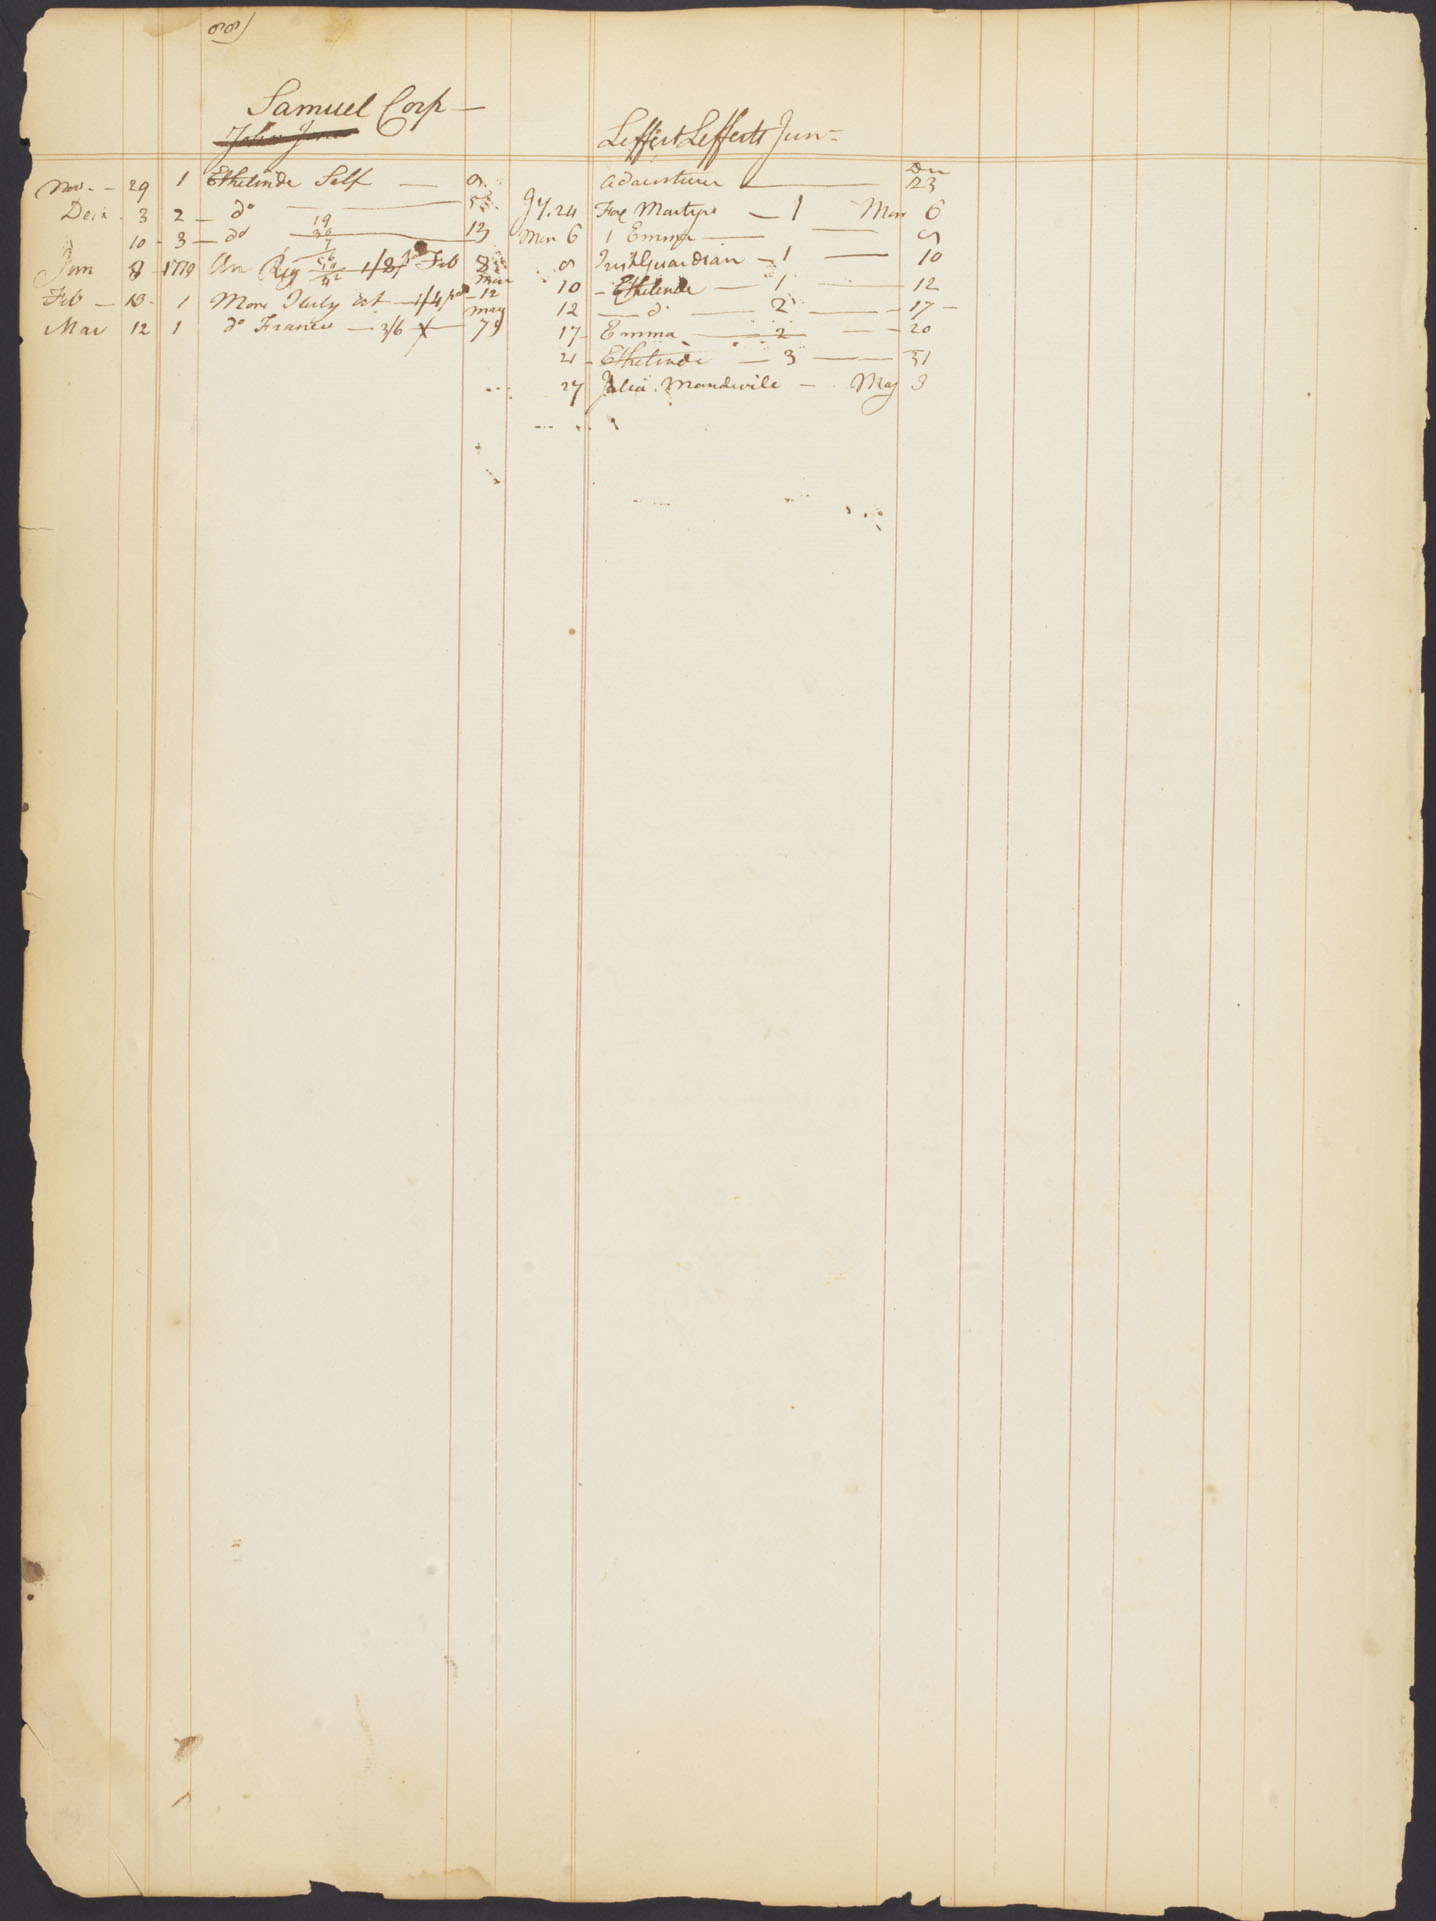 88)
Samuel Corp —
John Jones
Nov. — 29 1 Ethelinde Self — 9
Decr. 3 2 — do — 5
10 - 3 — do 19 30 7 — 13
Jan 8 - 1779 An Reg 56 1/8 Feb 8
Feb — 13 - 1 More Italy 1/4 Mar - 12
Mar 12 1 do France — 3/6 May 7
Leffert Lefferts Junr
Adventurer — Dec 23
Jy. 24 Fox Martyrs — 1 Mar 6
Mar 6 1 Emma — 9
9 Irish Guardian — 1 — 10
10 - Ethelinde — 1 — 12
12 — do — 2 — 17 —
17 - Emma — 2 — 20
21 - Ethelinde — 3 — 31
27 Julia Mandevile — May 3